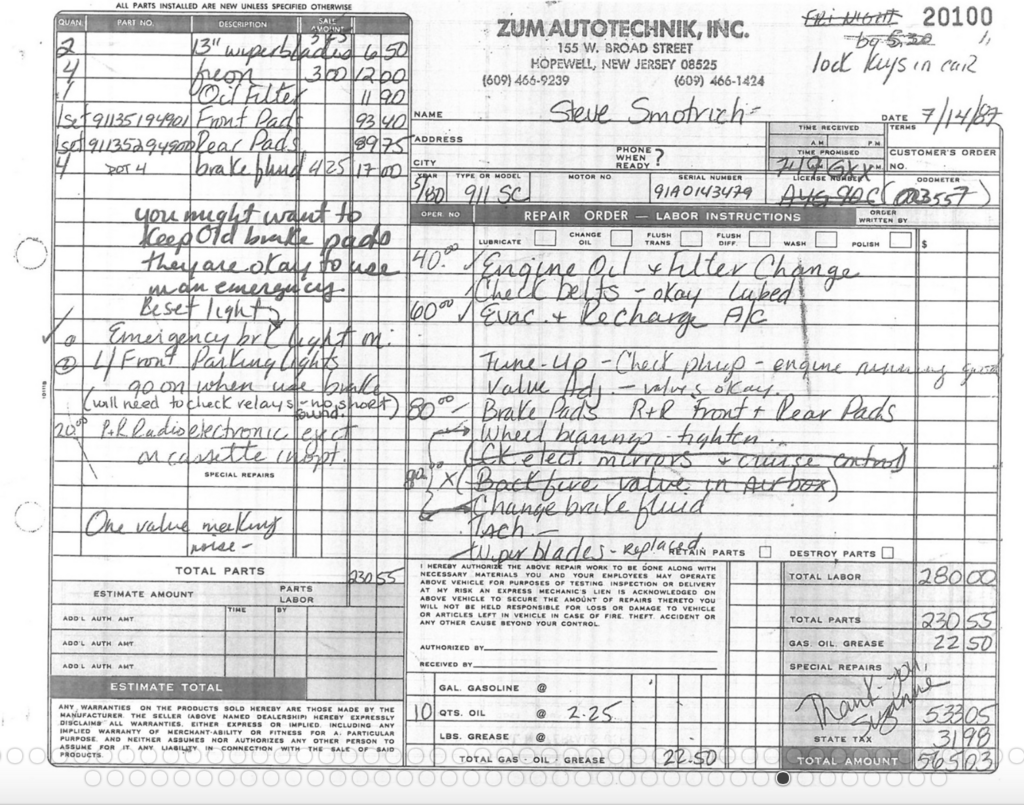 ALL PARTS INSTALLED ARE NEW UNLESS SPECIFIED OTHERWISE
QUAN. PART NO. DESCRIPTION SALE AMOUNT
2 13" wiperblades 6 50
4 freon 3.00 12 00
1 Oil Filter 11 90
1set 91135194901 Front Pads 93 40
1set 91135294900 Rear Pads 89 75
4 DOT 4 brake fluid 4 25 17 00
you might want to
Keep Old brake pads
they are okay to use
in an emergency
Reset light
Emergency brk light on:
2 L/ Front Parking lights
go on when use brake
(will need to check relays - no short
found.)
20.00 R+R Radio electronic eject
on cassette inopt.
SPECIAL REPAIRS
One valve making
noise -
TOTAL PARTS 230 55
ESTIMATE AMOUNT PARTS
LABOR
TIME BY
ADD'L AUTH AMT
ADD'L AUTH AMT
ADD'L AUTH AMT
ESTIMATE TOTAL
ANY WARRANTIES ON THE PRODUCTS SOLD HEREBY ARE THOSE MADE BY THE
MANUFACTURER. THE SELLER (ABOVE NAMED DEALERSHIP) HEREBY EXPRESSLY
DISCLAIMS ALL WARRANTIES, EITHER EXPRESS OR IMPLIED, INCLUDING ANY
IMPLIED WARRANTY OF MERCHANT-ABILITY OR FITNESS FOR A PARTICULAR
PURPOSE, AND NEITHER ASSUMES NOR AUTHORIZES ANY OTHER PERSON TO
ASSUME FOR IT ANY LIABILITY IN CONNECTION WITH THE SALE OF SAID
PRODUCTS.
ZUM AUTOTECHNIK, INC.
155 W. BROAD STREET
HOPEWELL, NEW JERSEY 08525
(609) 466-9239 (609) 466-1424
Fri Night 20100
by 5:30
lock keys in car
NAME Steve Smotrich DATE 7/14/87
ADDRESS
CITY
PHONE WHEN READY ?
TIME RECEIVED
A.M. P.M.
TIME PROMISED
P.M.
TERMS
CUSTOMER'S ORDER NO.
YEAR TYPE OR MODEL MOTOR NO. SERIAL NUMBER LICENSE NUMBER ODOMETER
5/80 911 SC 91A0143479 003557
OPER. NO REPAIR ORDER — LABOR INSTRUCTIONS ORDER WRITTEN BY
LUBRICATE CHANGE OIL FLUSH TRANS FLUSH DIFF. WASH POLISH $
40.00 Engine Oil + Filter Change
Check belts - okay lubed
60.00 Evac. + Recharge A/C
Tune-Up - Check plugs - engine running good
Valve Adj. - valves okay.
80.00 Brake Pads R+R Front + Rear Pads
Wheel bearings - tighten
(CK elect. mirrors & cruise control)
80.00 X (Backfire valve in Air box)
Change brake fluid
Tach. -
Wiper blades - replaced
RETAIN PARTS DESTROY PARTS
I HEREBY AUTHORIZE THE ABOVE REPAIR WORK TO BE DONE ALONG WITH
NECESSARY MATERIALS YOU AND YOUR EMPLOYEES MAY OPERATE
ABOVE VEHICLE FOR PURPOSES OF TESTING INSPECTION OR DELIVERY
AT MY RISK AN EXPRESS MECHANIC'S LIEN IS ACKNOWLEDGED ON
ABOVE VEHICLE TO SECURE THE AMOUNT OF REPAIRS THERETO YOU
WILL NOT BE HELD RESPONSIBLE FOR LOSS OR DAMAGE TO VEHICLE
OR ARTICLES LEFT IN VEHICLE IN CASE OF FIRE THEFT ACCIDENT OR
ANY OTHER CAUSE BEYOND YOUR CONTROL.
AUTHORIZED BY
RECEIVED BY
GAL. GASOLINE @
10 QTS. OIL @ 2.25
LBS. GREASE @
TOTAL GAS - OIL - GREASE 22.50
TOTAL LABOR 280 00
TOTAL PARTS 230 55
GAS. OIL. GREASE 22 50
SPECIAL REPAIRS
Thank-you,
Suzanne
533 05
STATE TAX 31 98
TOTAL AMOUNT 565 03